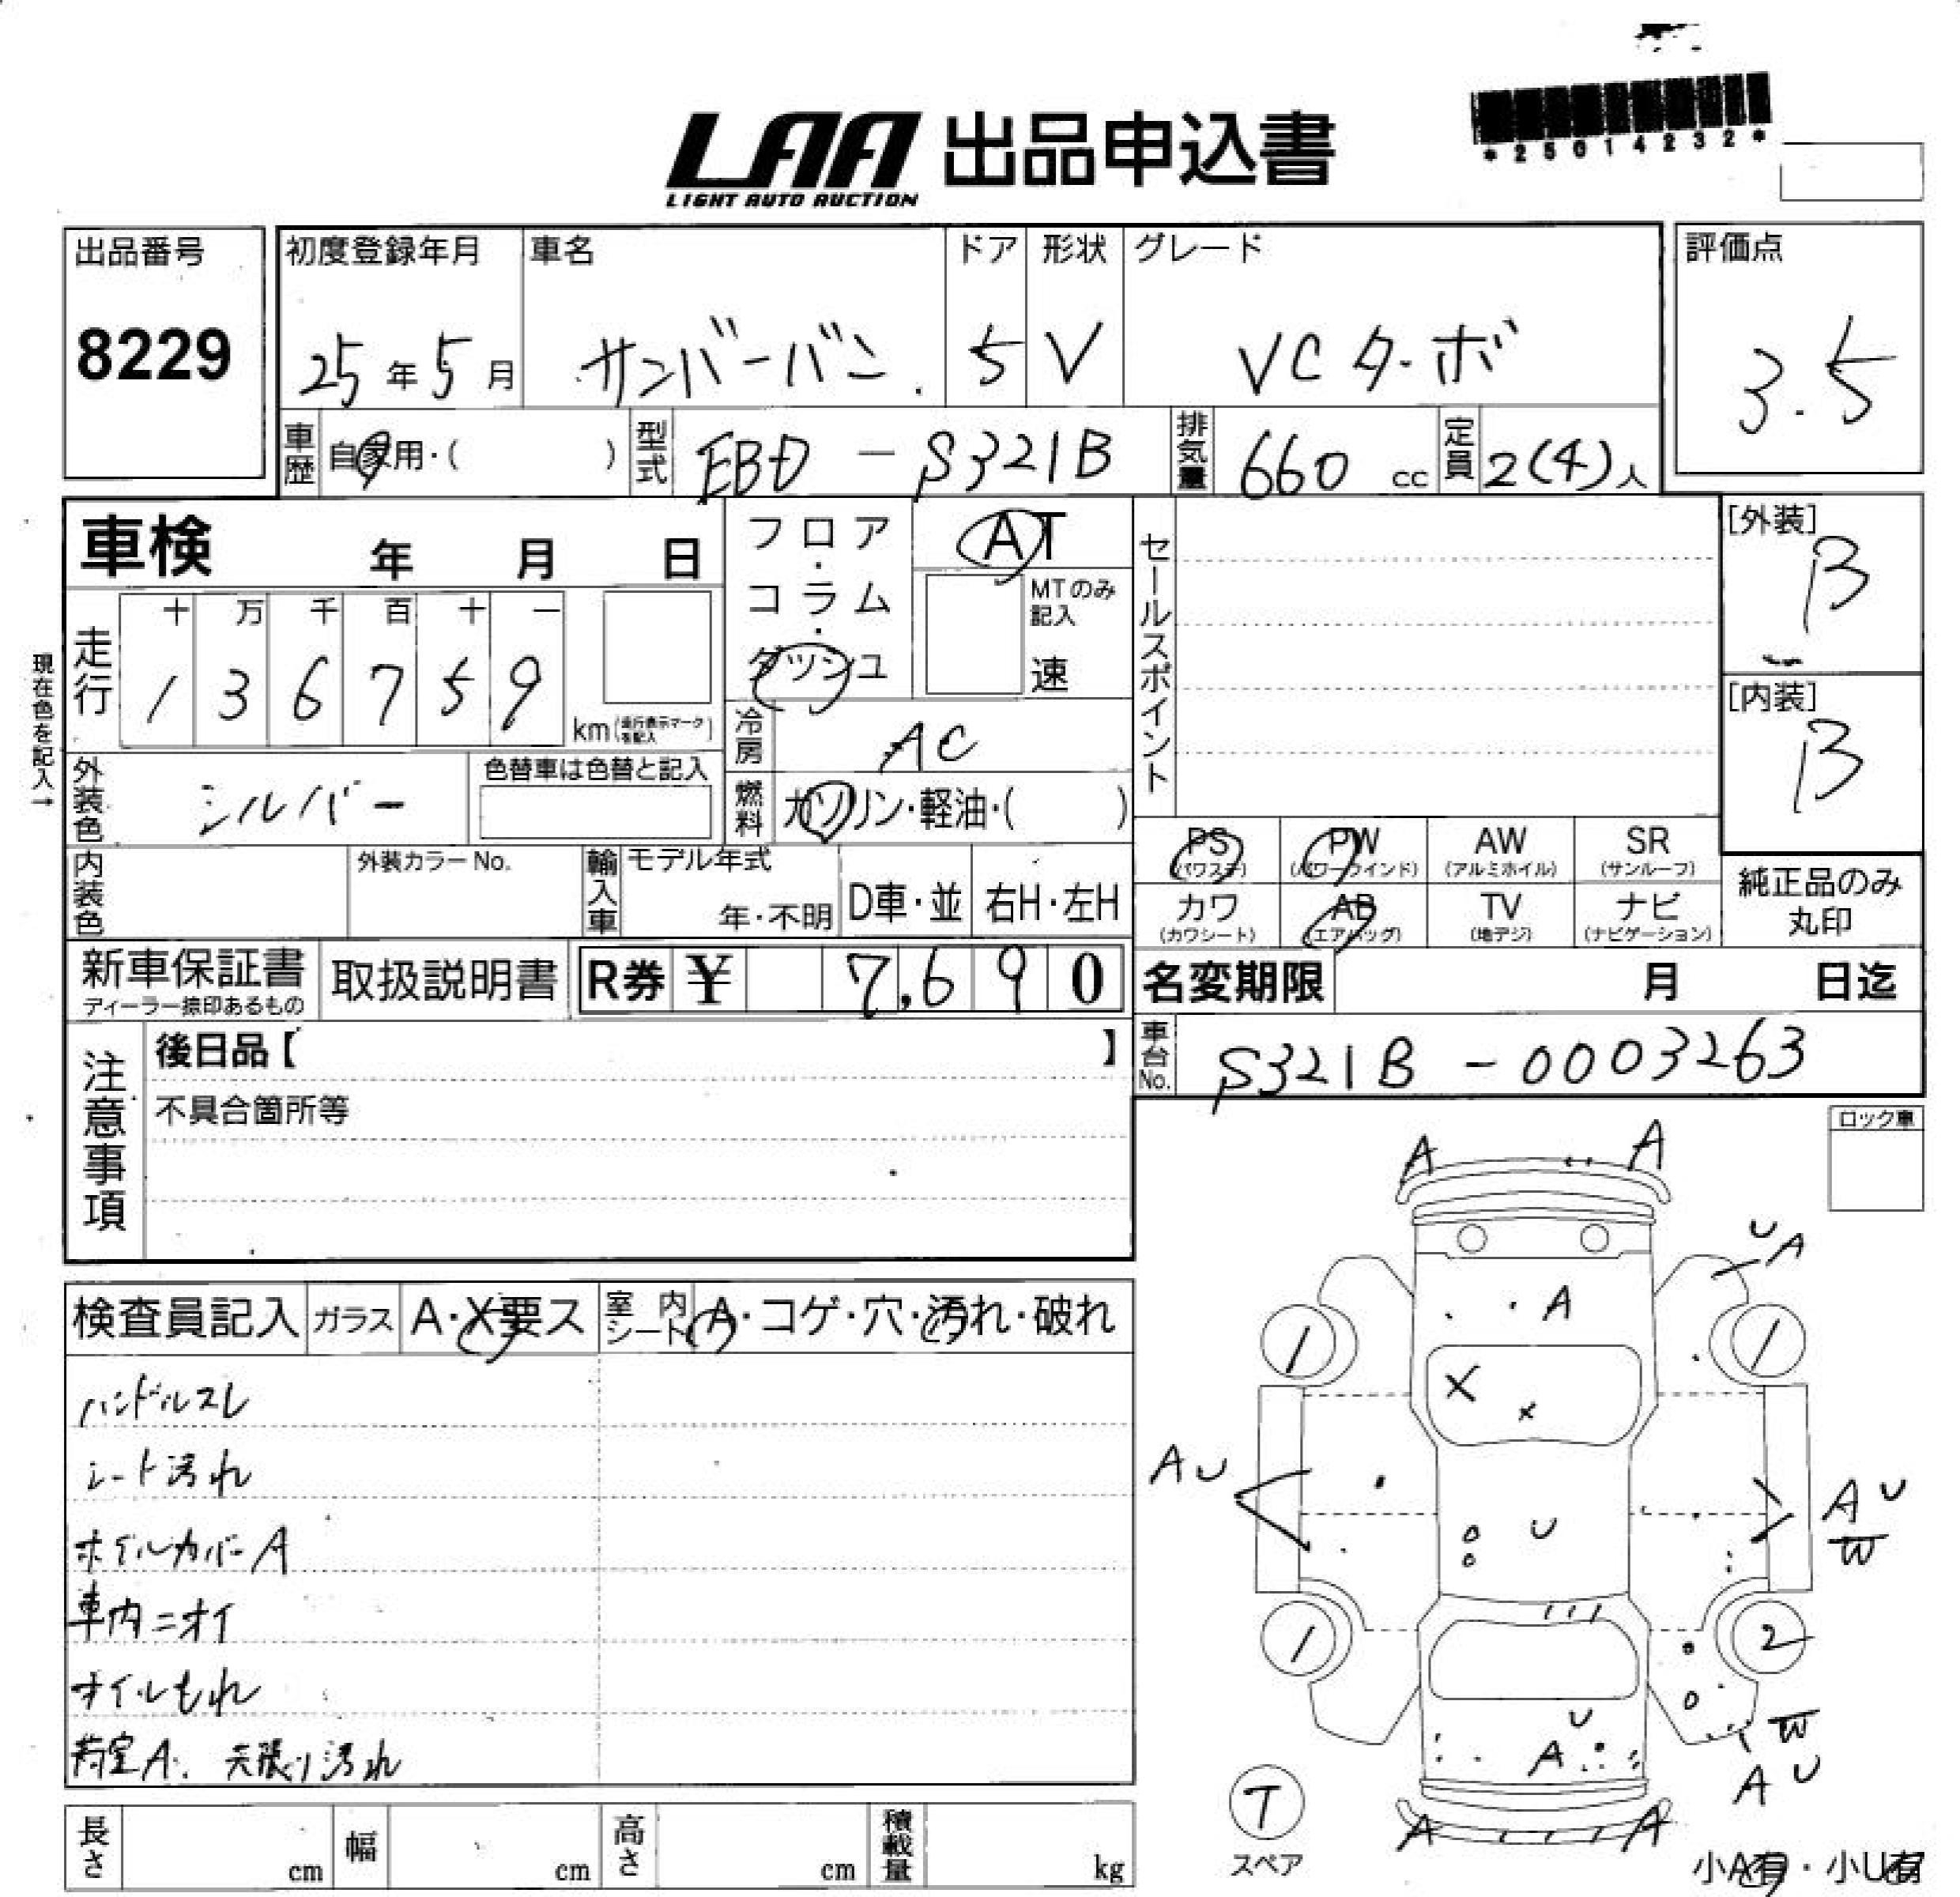 LAA 出品申込書
LIGHT AUTO AUCTION
*25014232*
出品番号
8229
初度登録年月
25年5月
車名
サンバーバン
ドア
5
形状
V
グレード
VCターボ
評価点
3.5
車歴
自家用・( )
型式
EBD-S321B
排気量
660 cc
定員
2(4)人
車検 年 月 日
現在色を記入→
走行
十 万 千 百 十 一
1 3 6 7 5 9
km(走行表示マークを記入)
フロア・コラム・ダッシュ
AT
MTのみ記入
速
冷房
AC
燃料
ガソリン・軽油・( )
セールスポイント
[外装]
B
[内装]
B
外装色
シルバー
色替車は色替と記入
内装色
外装カラーNo.
輸入車
モデル年式
年・不明
D車・並
右H・左H
PS
(パワステ)
PW
(パワーウインド)
AW
(アルミホイル)
SR
(サンルーフ)
カワ
(カワシート)
AB
(エアバッグ)
TV
(地デジ)
ナビ
(ナビゲーション)
純正品のみ
丸印
新車保証書
ディーラー捺印あるもの
取扱説明書
R券 ¥ 7,690
名変期限 月 日迄
車台No.
S321B-0003263
注意事項
後日品【 】
不具合箇所等
ロック車
検査員記入
ガラス
A・X要ス
室内シート
A・コゲ・穴・汚れ・破れ
ハンドルスレ
シート汚れ
ホイルカバーA
車内ニオイ
オイルもれ
荷室A. 天張り汚れ
A A
U A
A
1 1
X
X
AU
U
A U
W
1 2
U
W
A
A U
T
スペア
A A
小A有・小U有
長さ cm
幅 cm
高さ cm
積載量 kg